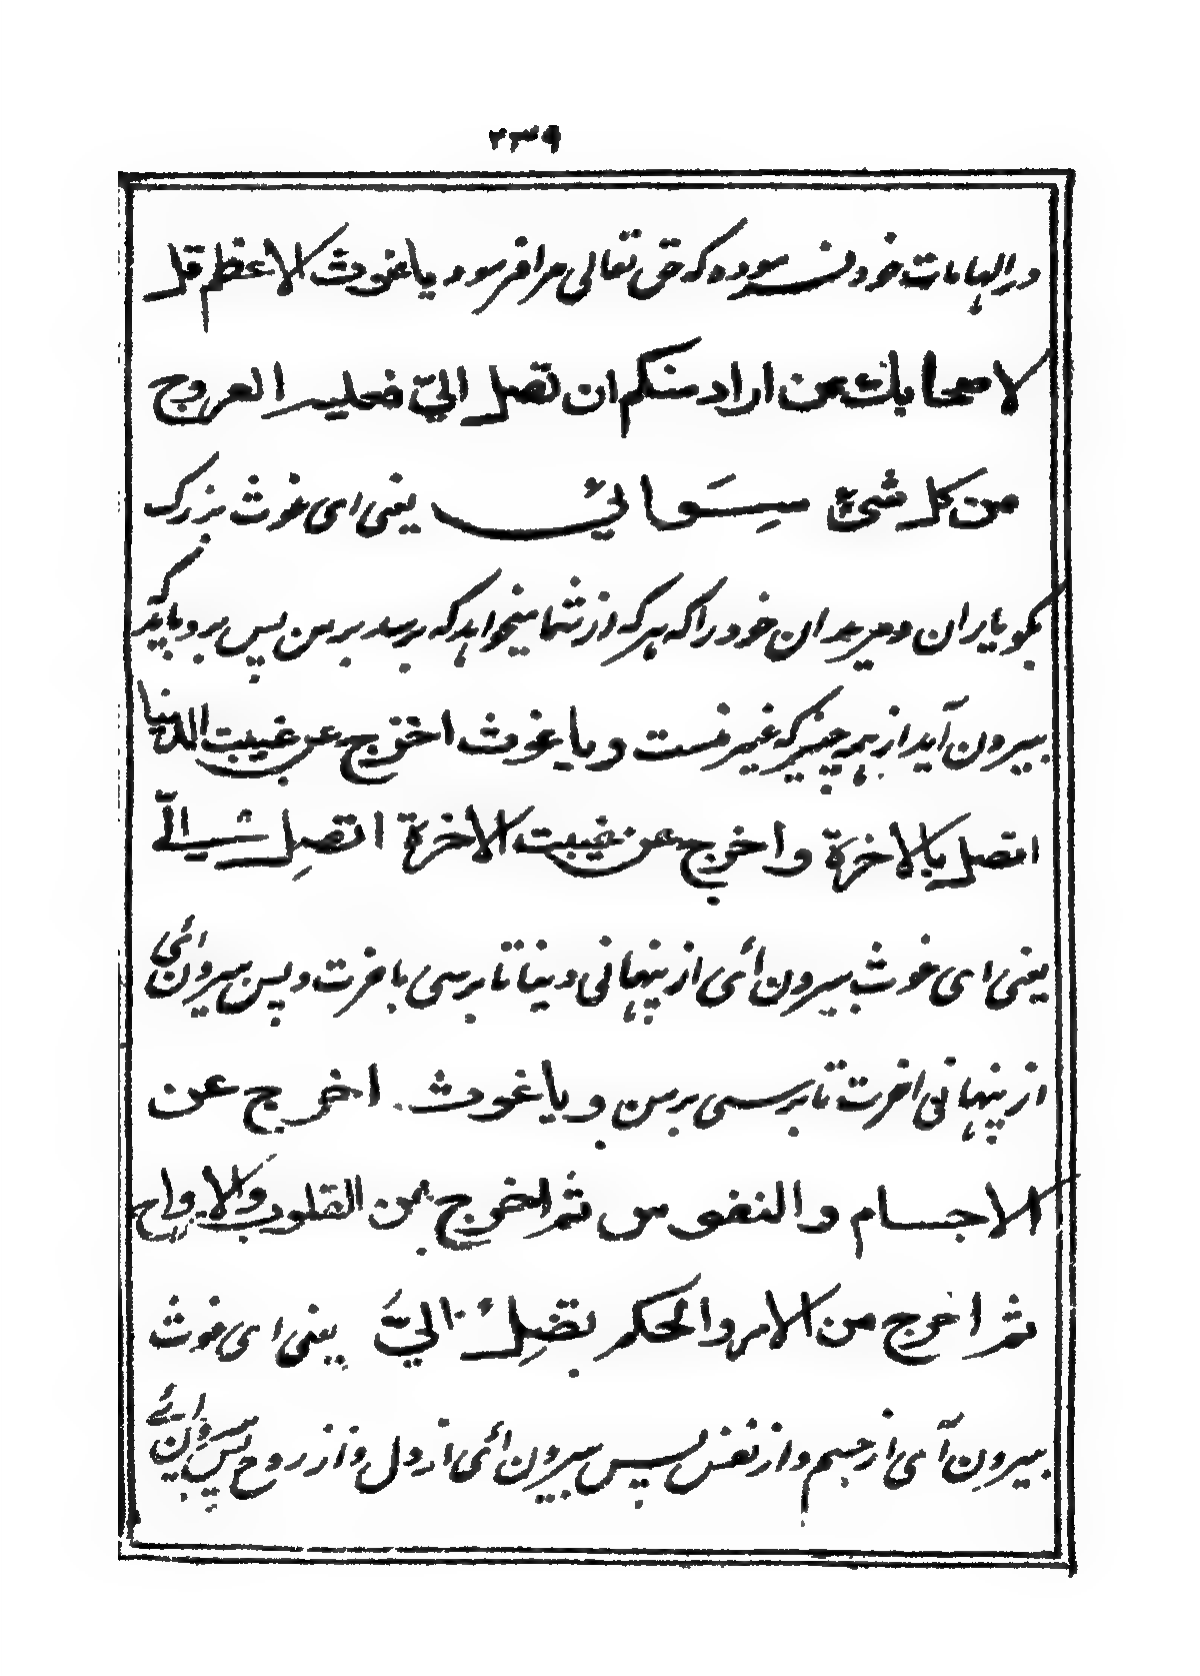 ۲۳۹
در الهامات خود فرموده که حق تعالی مرا فرمود یا غوث الاعظم قل
لاصحابك من اراد منکم ان تصل الیّ فعلیه العروج
من کل شئ سِوَائی یعنی ای غوث بزرگ
بگو یاران و مریدان خود را که هر که از شما میخواهد که برسد بر من پس بروباید که
بیرون آید از همه چیز که غیر منست و یا غوث اخرج عن غیبت الدنیا
اتصل بالاخرة واخرج عن غیبت الاخرة اتصل الیّ
یعنی ای غوث بیرون آئی از پنهانی دنیا تا برسی باخرت و پس بیرون آئی
از پنهانی اخرت تا برسی بر من و یا غوث اخرج عن
الاجسام والنفوس ثم اخرج من القلوب والارواح
ثم اخرج من الامر والحکم تصل الیّ یعنی ای غوث
بیرون آی از جسم و از نفس پس بیرون آئی از دل و از روح پس بیرون آئے